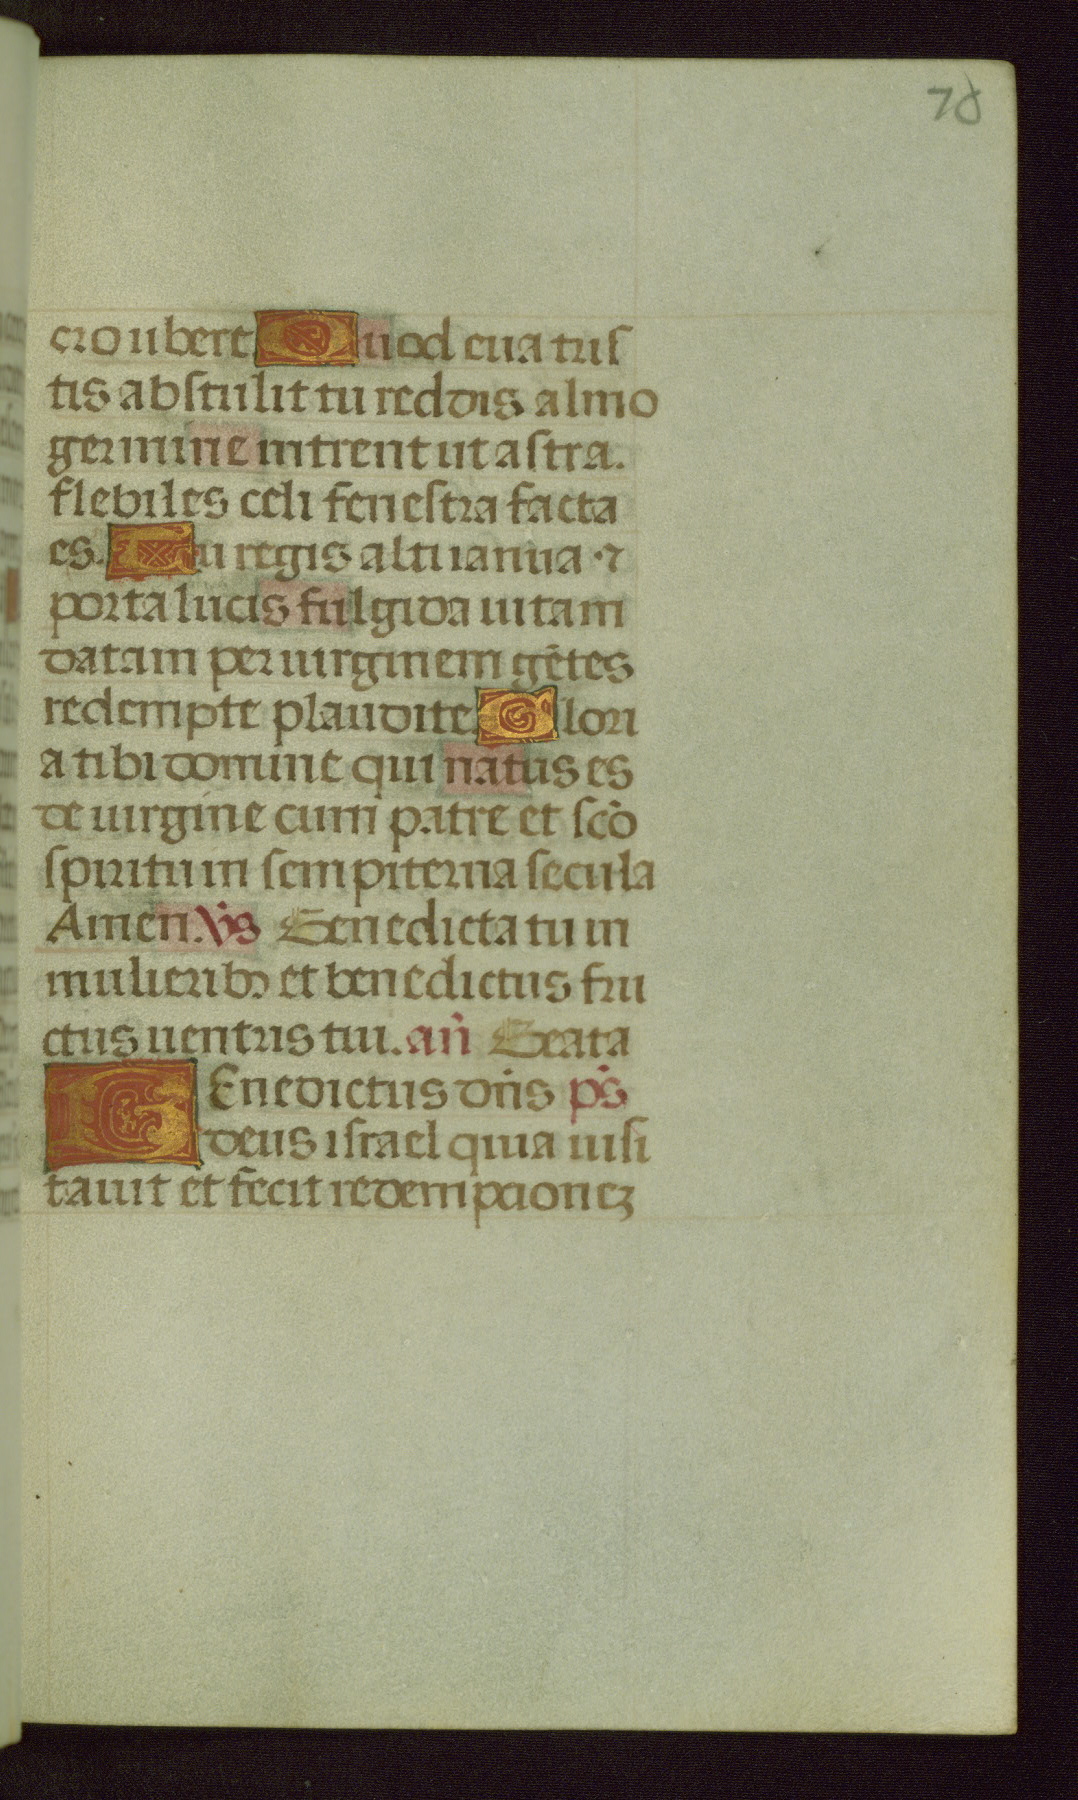 78
cro ubere Quod eua tris
tis abstulit tu reddis almo
germine intrent ut astra.
flebiles celi fenestra facta
es. Tu regis alti ianua ⁊
porta lucis fulgida uitam
datam per uirginem gētes
redempte plaudite Glori
a tibi domine qui natus es
de uirgine cum patre et scō
spiritu in sempiterna secula
Amen. V̄s Benedicta tu in
mulieribꝫ et benedictus fru
ctus uentris tui. an̄ Beata
BEnedictus dn̄s p̄s
deus israel quia uisi
tauit et fecit redempcionez